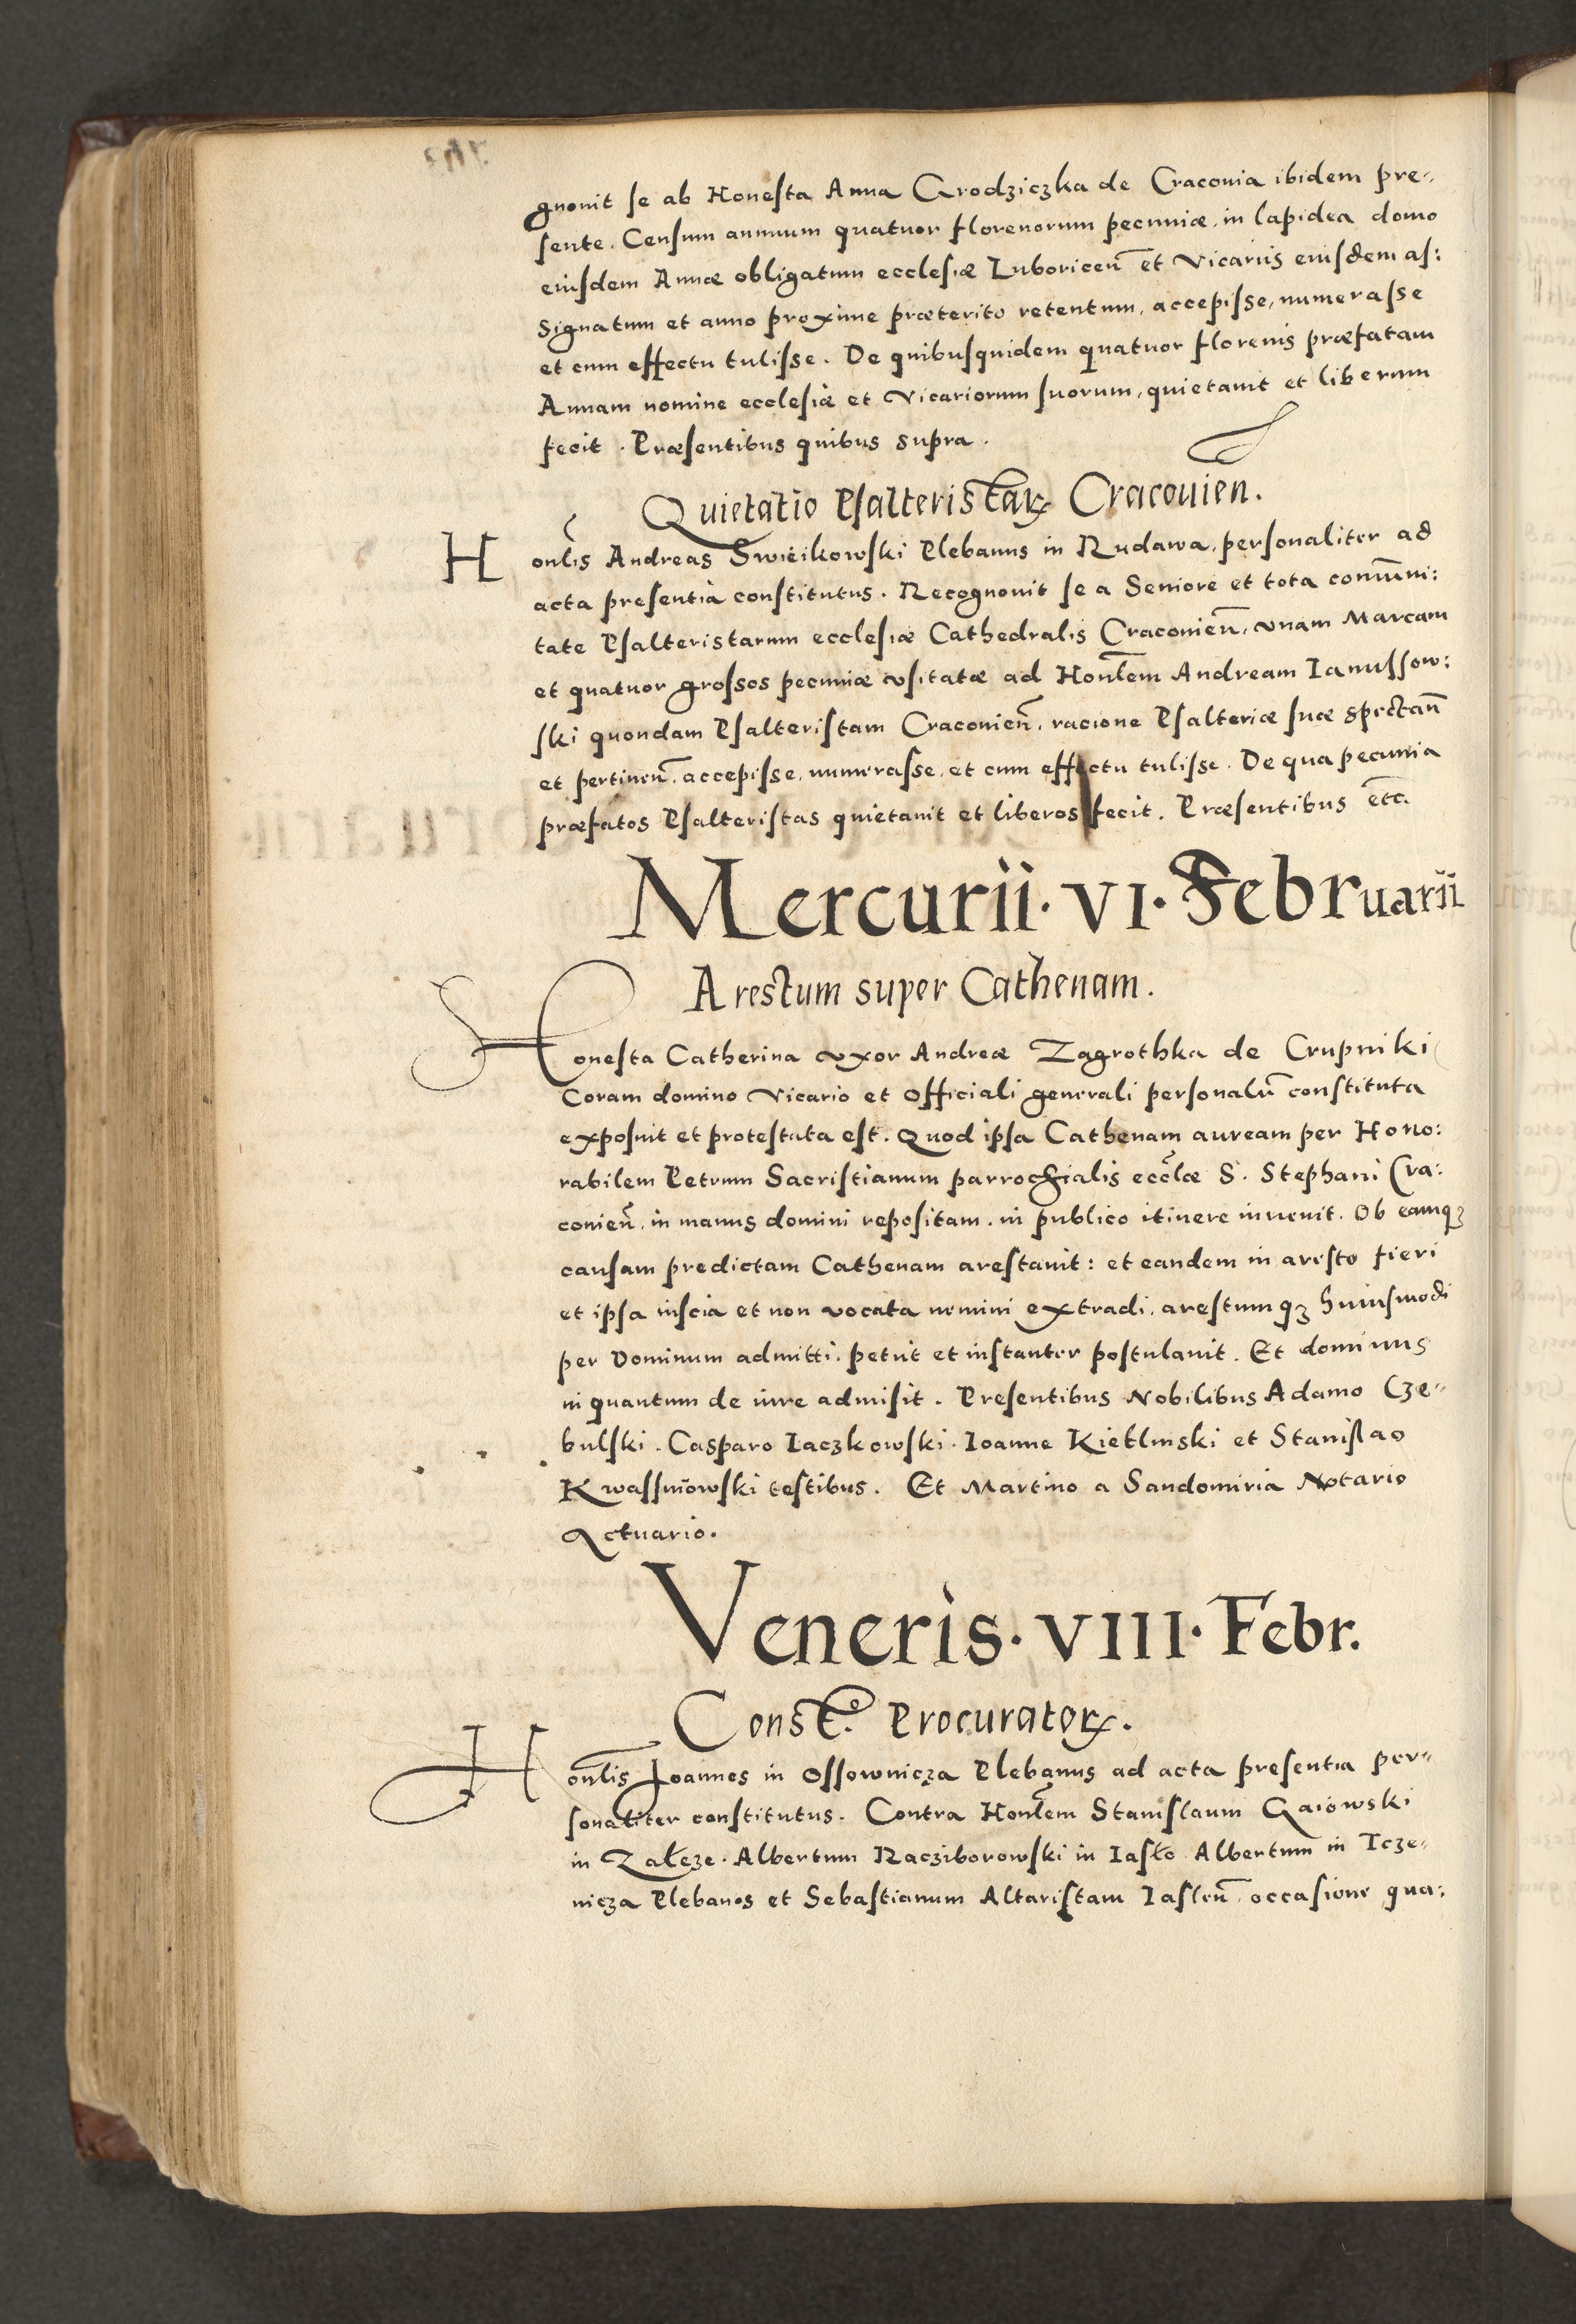 gnouit se ab Honesta Anna Grodziczka de Craconia ibidem pre-
sente. Censum annuum quatuor florenorum pecuniæ, in lapidea domo
eiusdem Annæ obligatum ecclesiæ Luboricen̄ et Vicariis eiusdem as:
signatum et anno proxime præterito retentum, accepisse, numerasse
et cum effectu tulisse. De quibusquidem quatuor florenis præfatam
Annam nomine ecclesiæ et Vicariorum suorum, quietauit et liberum
fecit. Præsentibus quibus supra.
Quietatio Psalteristarꝝ Cracouien.
Honl̄is Andreas Swieikowski Plebanus in Rudawa, personaliter ad
acta presentia constitutus. Recognouit se a Seniore et tota com̄uni:
tate Psalteristarum ecclesiæ Cathedralis Cracouien̄, vnam Marcam
et quatuor grossos pecuniæ vsitatæ ad Honl̄em Andream Ianussow:
ski quondam Psalteristam Cracouien̄, racione Psalteriæ suæ spectan̄
et pertinen̄, accepisse, numerasse, et cum effectu tulisse. De qua pecunia
præfatos Psalteristas quietauit et liberos fecit. Præsentibus etc̄.
Mercurii · VI · Februarii
Arestum super Cathenam.
Honesta Catherina vxor Andreæ Zagrothka de Crupniki
Coram domino Vicario et Officiali generali personalr̄ constituta
exposuit et protestata est. Quod ipsa Cathenam auream per Hono:
rabilem Petrum Sacristianum parrochialis eccl̄æ S. Stephani Cra:
couien̄, in manus domini repositam, in publico itinere inuenit. Ob eamqꝫ
causam predictam Cathenam arestauit: et eandem in aresto fieri
et ipsa inscia et non vocata nemini extradi, arestumqꝫ huiusmodi
per Dominum admitti, petiit et instanter postulauit. Et dominus
in quantum de iure admisit. Presentibus Nobilibus Adamo Cze-
bulski. Casparo Iaczkowski. Ioanne Kietlinski et Stanislao
Kwassniowski testibus. Et Martino a Sandomiria Notario
Actuario.
Veneris · VIII · Febr.
Const.º Procuratorꝝ.
Honl̄is Joannes in Ossownicza Plebanus ad acta presentia per-
sonaliter constitutus. Contra Honl̄em Stanislaum Gaiowski
in Załeze. Albertum Racziborowski in Iasło Albertum in Icze-
nicza Plebanos et Sebastianum Altaristam Iaslen̄, occasione qua: